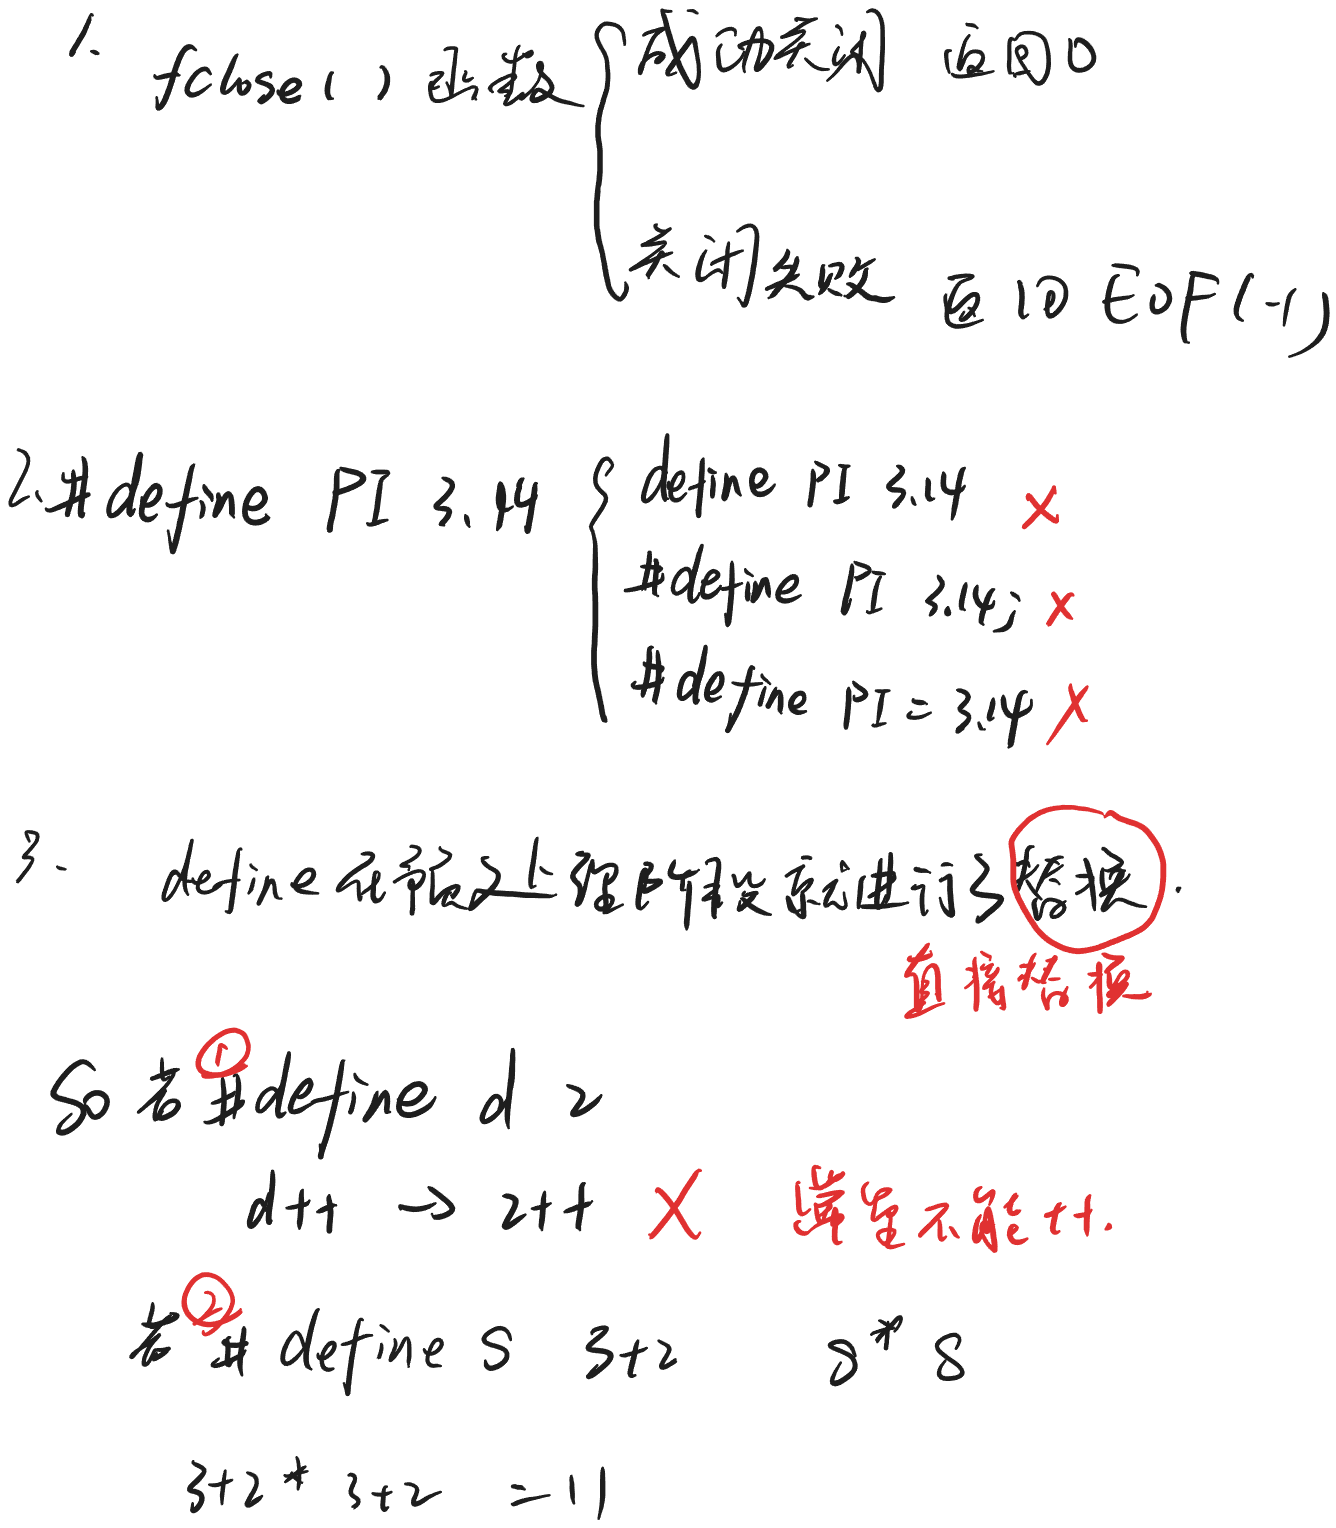 1.
fclose( ) 函数 成功关闭 返回0
关闭失败 返回 EOF(-1)
2. #define PI 3.14
define PI 3.14 ×
#define PI 3.14; ×
#define PI = 3.14 ×
3. define 在预处理阶段就进行了替换.
直接替换
So 若 ① #define d 2
d++ → 2++ × 常量不能++.
若 ② #define S 3+2 S * S
3+2 * 3+2 = 11